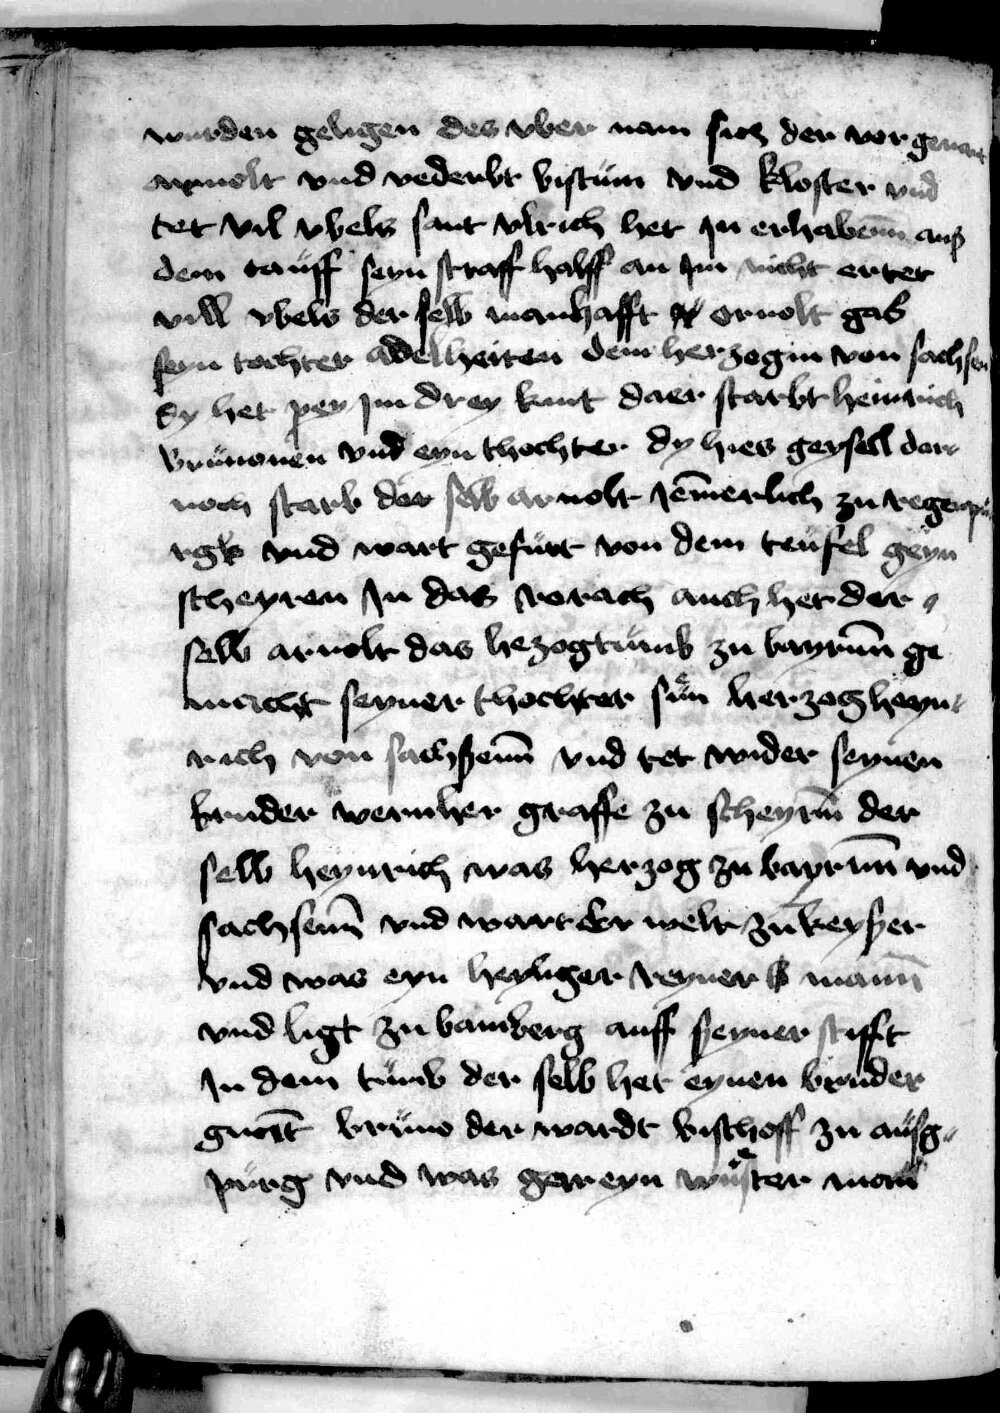 wurden geligen des vber nam sich der vorgenant
arnolt vnd vederbt bistum vnd kloster vnd
tet vil vbels sant vlrich het In erhabenn̄ auß
dem tauff seyn straff halff an Im nicht er tet
vill vbels der selb manhafft ornolt gab
seyn tochter adelheiten dem herzogin von sachsen
Dy het pey Im drey kint daer starbt heinrich
brunonen vnd eyn thochter dy hies geysell dar
noch starb der selb arnolt Jem̄erlich zu regenspu
rgk vnd wart gefurt von dem teufel geyn
scheyren In das rorach auch het der
selb arnolt das hezogtumb zu bayrnn̄ ge
macht seyner thochter sun herzog heyn
rich von sachßenn̄ vnd tet wider seynen
bruder wernher graffe zu scheyrn̄ der
selb heynrich was herzog zu bayrnn̄ vnd
sachsenn̄ vnd wart der welt zu keyßer
vnd was eyn heyliger reyner mann̄
vnd ligt zu bamberg auff seyner stifft
In dem tumb der selb het eynen bruder
gnant̄ bruno der wardt bischoff zu ausg
purg vnd was gar eyn wuster man